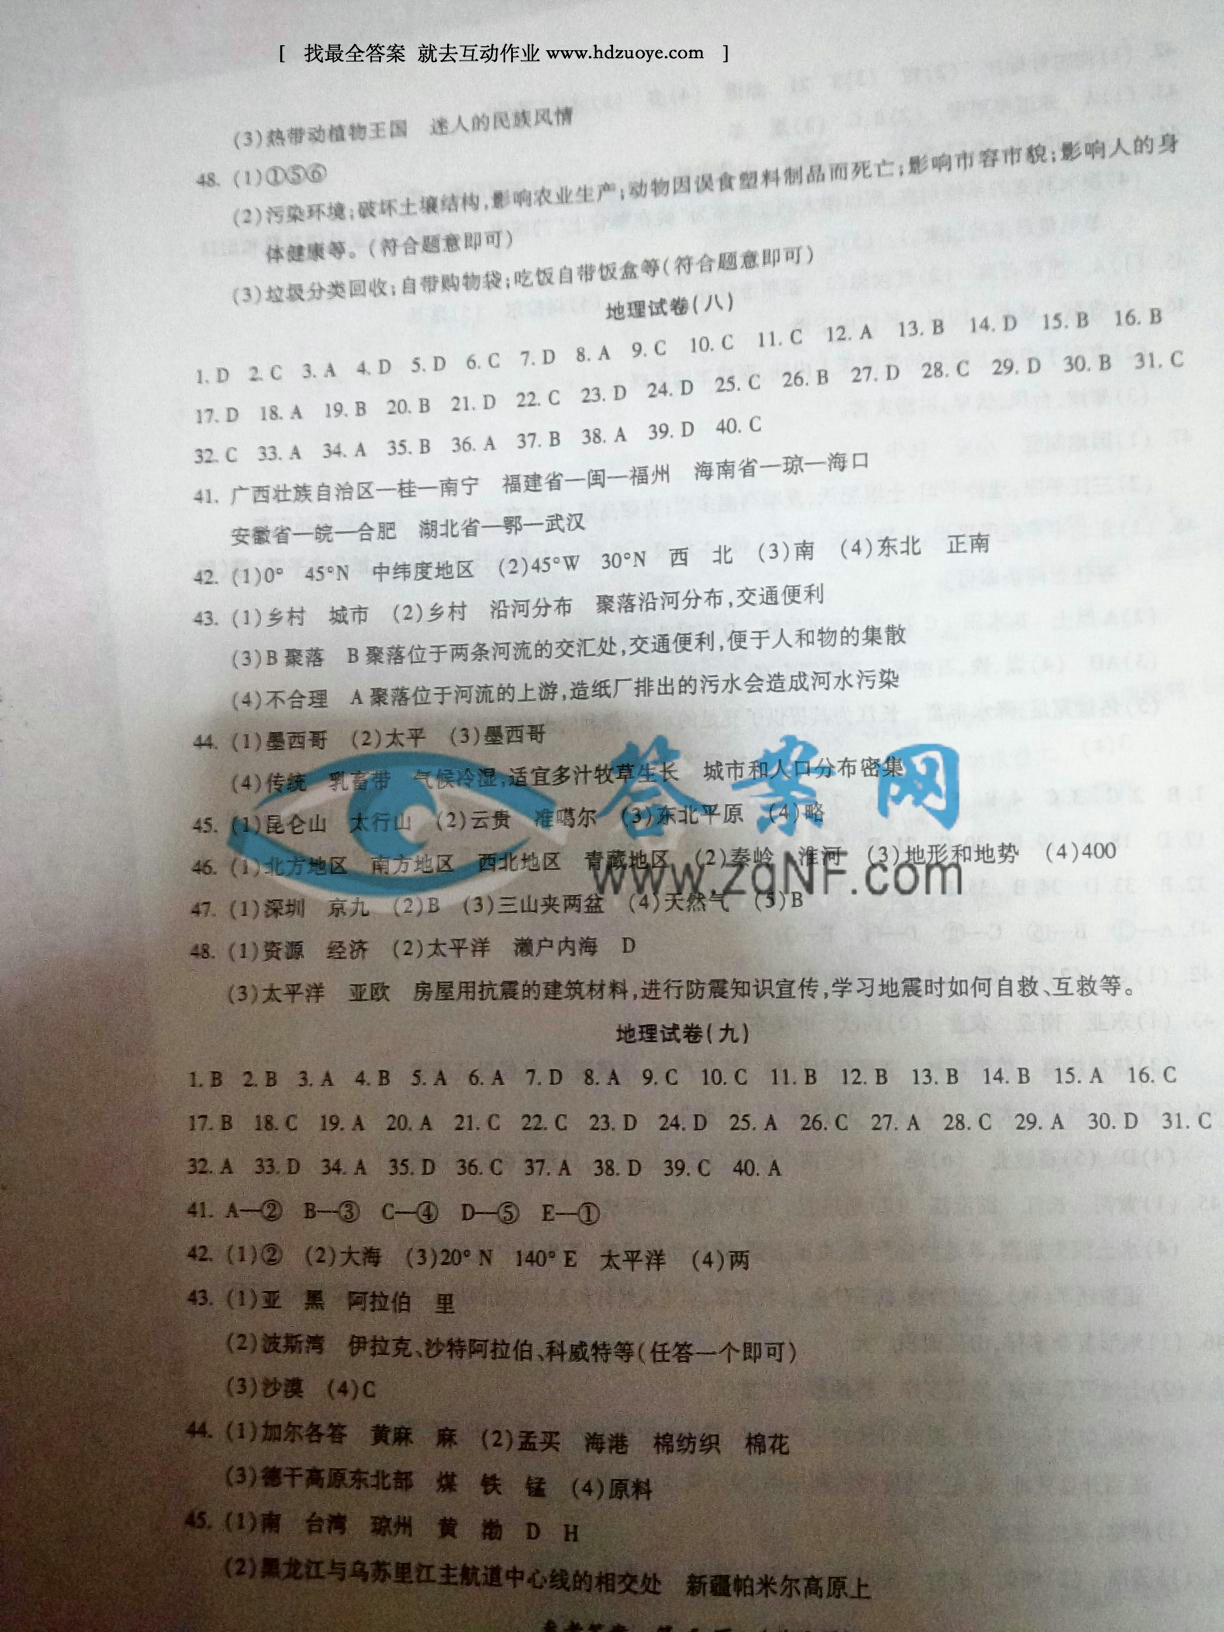 [ 找最全答案 就去互动作业 www.hdzuoye.com ]
(3)热带动植物王国 迷人的民族风情
48. (1)①⑤⑥
(2)污染环境;破坏土壤结构,影响农业生产;动物因误食塑料制品而死亡;影响市容市貌;影响人的身
体健康等。(符合题意即可)
(3)垃圾分类回收;自带购物袋;吃饭自带饭盒等(符合题意即可)
地理试卷(八)
1. D 2. C 3. A 4. D 5. D 6. C 7. D 8. A 9. C 10. C 11. C 12. A 13. B 14. D 15. B 16. B
17. D 18. A 19. B 20. B 21. D 22. C 23. D 24. D 25. C 26. B 27. D 28. C 29. D 30. B 31. C
32. C 33. A 34. A 35. B 36. A 37. B 38. A 39. D 40. C
41. 广西壮族自治区—桂—南宁 福建省—闽—福州 海南省—琼—海口
安徽省—皖—合肥 湖北省—鄂—武汉
42. (1)0° 45°N 中纬度地区 (2)45°W 30°N 西 北 (3)南 (4)东北 正南
43. (1)乡村 城市 (2)乡村 沿河分布 聚落沿河分布,交通便利
(3)B聚落 B聚落位于两条河流的交汇处,交通便利,便于人和物的集散
(4)不合理 A聚落位于河流的上游,造纸厂排出的污水会造成河水污染
44. (1)墨西哥 (2)太平 (3)墨西哥
(4)传统 乳畜带 气候冷湿,适宜多汁牧草生长 城市和人口分布密集
45. (1)昆仑山 太行山 (2)云贵 准噶尔 (3)东北平原 (4)略
46. (1)北方地区 南方地区 西北地区 青藏地区 (2)秦岭 淮河 (3)地形和地势 (4)400
47. (1)深圳 京九 (2)B (3)三山夹两盆 (4)天然气 (5)B
48. (1)资源 经济 (2)太平洋 濑户内海 D
(3)太平洋 亚欧 房屋用抗震的建筑材料,进行防震知识宣传,学习地震时如何自救、互救等。
答案网
www.zqNF.com
地理试卷(九)
1. B 2. B 3. A 4. B 5. A 6. A 7. D 8. A 9. C 10. C 11. B 12. B 13. B 14. B 15. A 16. C
17. B 18. C 19. A 20. A 21. C 22. C 23. D 24. D 25. A 26. C 27. A 28. C 29. A 30. D 31. C
32. A 33. D 34. A 35. D 36. C 37. A 38. D 39. C 40. A
41. A—② B—③ C—④ D—⑤ E—①
42. (1)② (2)大海 (3)20° N 140° E 太平洋 (4)两
43. (1)亚 黑 阿拉伯 里
(2)波斯湾 伊拉克、沙特阿拉伯、科威特等(任答一个即可)
(3)沙漠 (4)C
44. (1)加尔各答 黄麻 麻 (2)孟买 海港 棉纺织 棉花
(3)德干高原东北部 煤 铁 锰 (4)原料
45. (1)南 台湾 琼州 黄 渤 D H
(2)黑龙江与乌苏里江主航道中心线的相交处 新疆帕米尔高原上